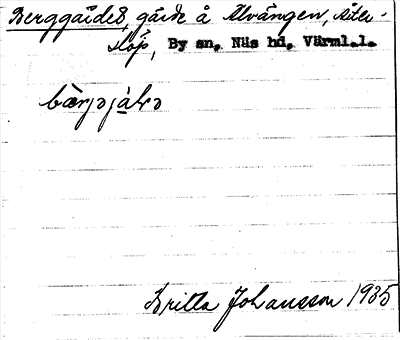 Berggärdet, gärde å Älvängen, Säter-
löp, By sn. Näs hd. Värml.l.
bærjəjäḷə
Britta Johansson 1935